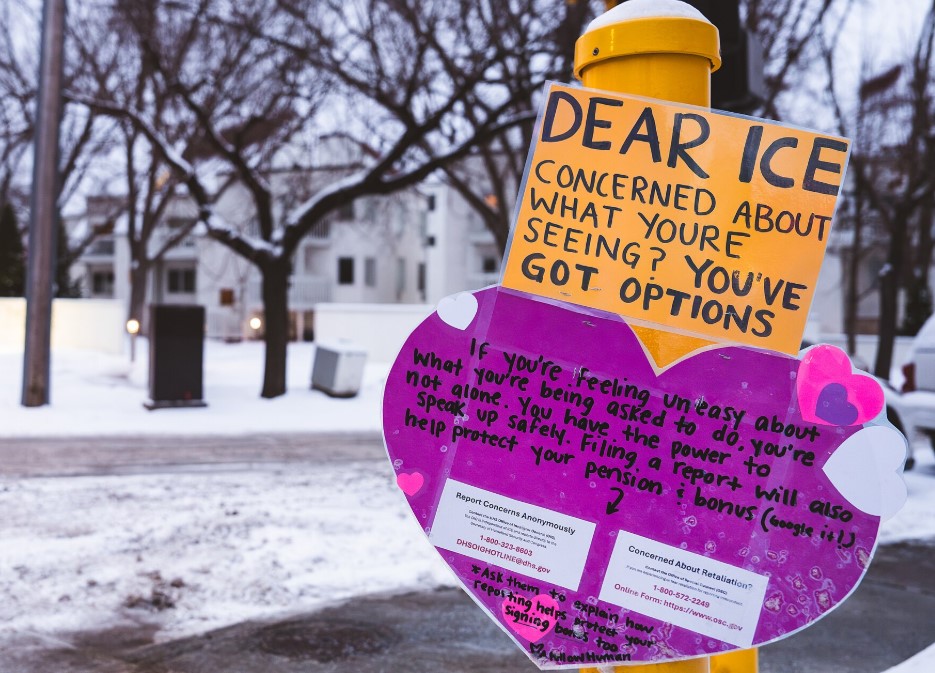 DEAR ICE
CONCERNED ABOUT
WHAT YOURE
SEEING? YOU'VE
GOT OPTIONS
If you're feeling uneasy about
what you're being asked to do, you're
not alone. You have the power to
speak up safely. Filing a report will also
help protect your pension & bonus (Google it!)
Report Concerns Anonymously
Contact the DHS Office of Inspector General (OIG)
1-800-323-8603
DHSOIGHOTLINE@dhs.gov
Concerned About Retaliation?
Contact the Office of Special Counsel (OSC)
1-800-572-2249
Online Form: https://www.osc.gov
*Ask them to explain how
reporting helps protect your
signing bonus too
Fellow Human